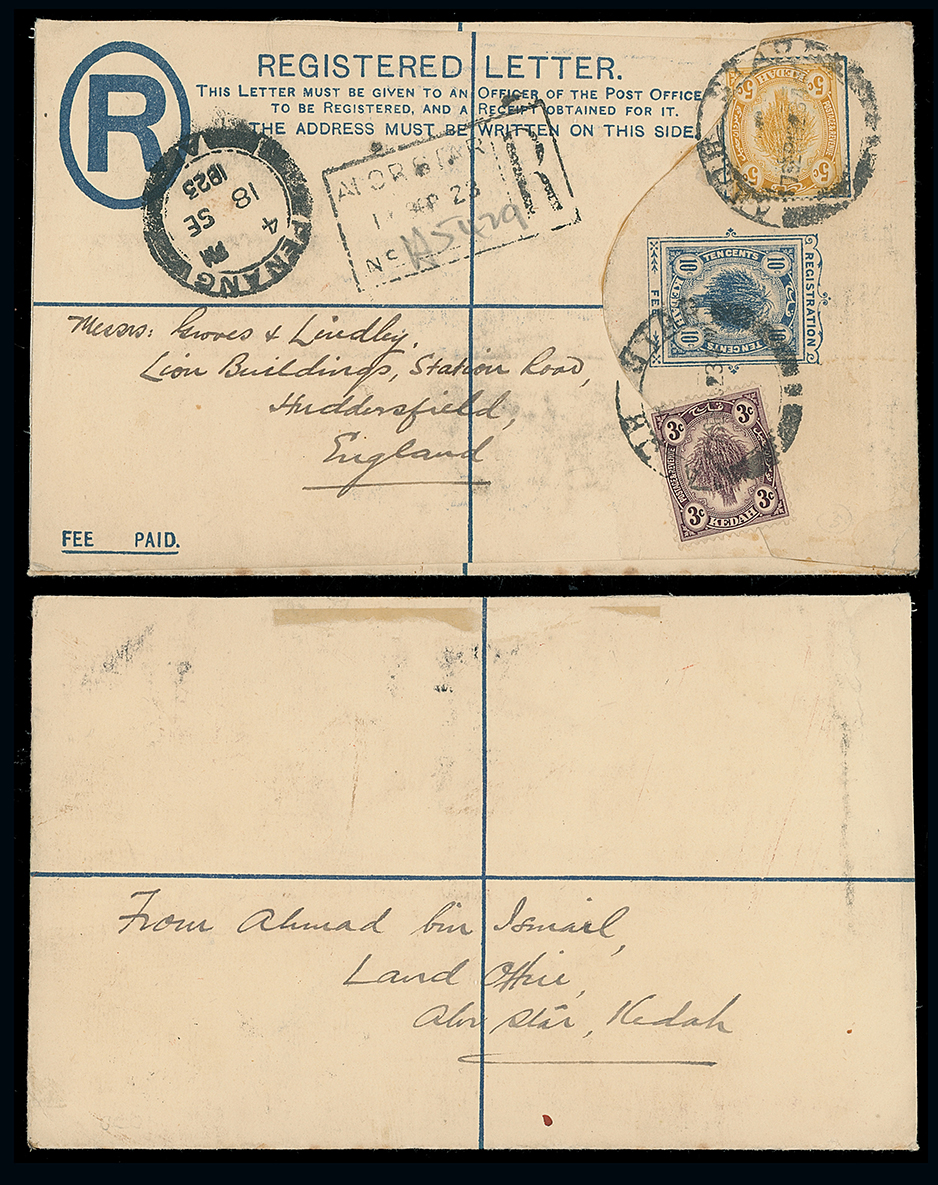 REGISTERED LETTER.
THIS LETTER MUST BE GIVEN TO AN OFFICER OF THE POST OFFICE
TO BE REGISTERED, AND A RECEIPT OBTAINED FOR IT.
THE ADDRESS MUST BE WRITTEN ON THIS SIDE.
R
PENANG
4 PM
18 SE
1923
ALOR STAR
SEP 23
R
No
A5429
KEDAH
5c
5c
5c
5c
REGISTRATION
FEE
TEN CENTS
10
10
10
10
TEN CENTS
3c
3c
3c
3c
KEDAH
Messrs: Groves & Lindley,
Lion Buildings, Station Road,
Huddersfield,
England
FEE PAID.
From Ahmad bin Ismail,
Land Office,
Alor Star, Kedah